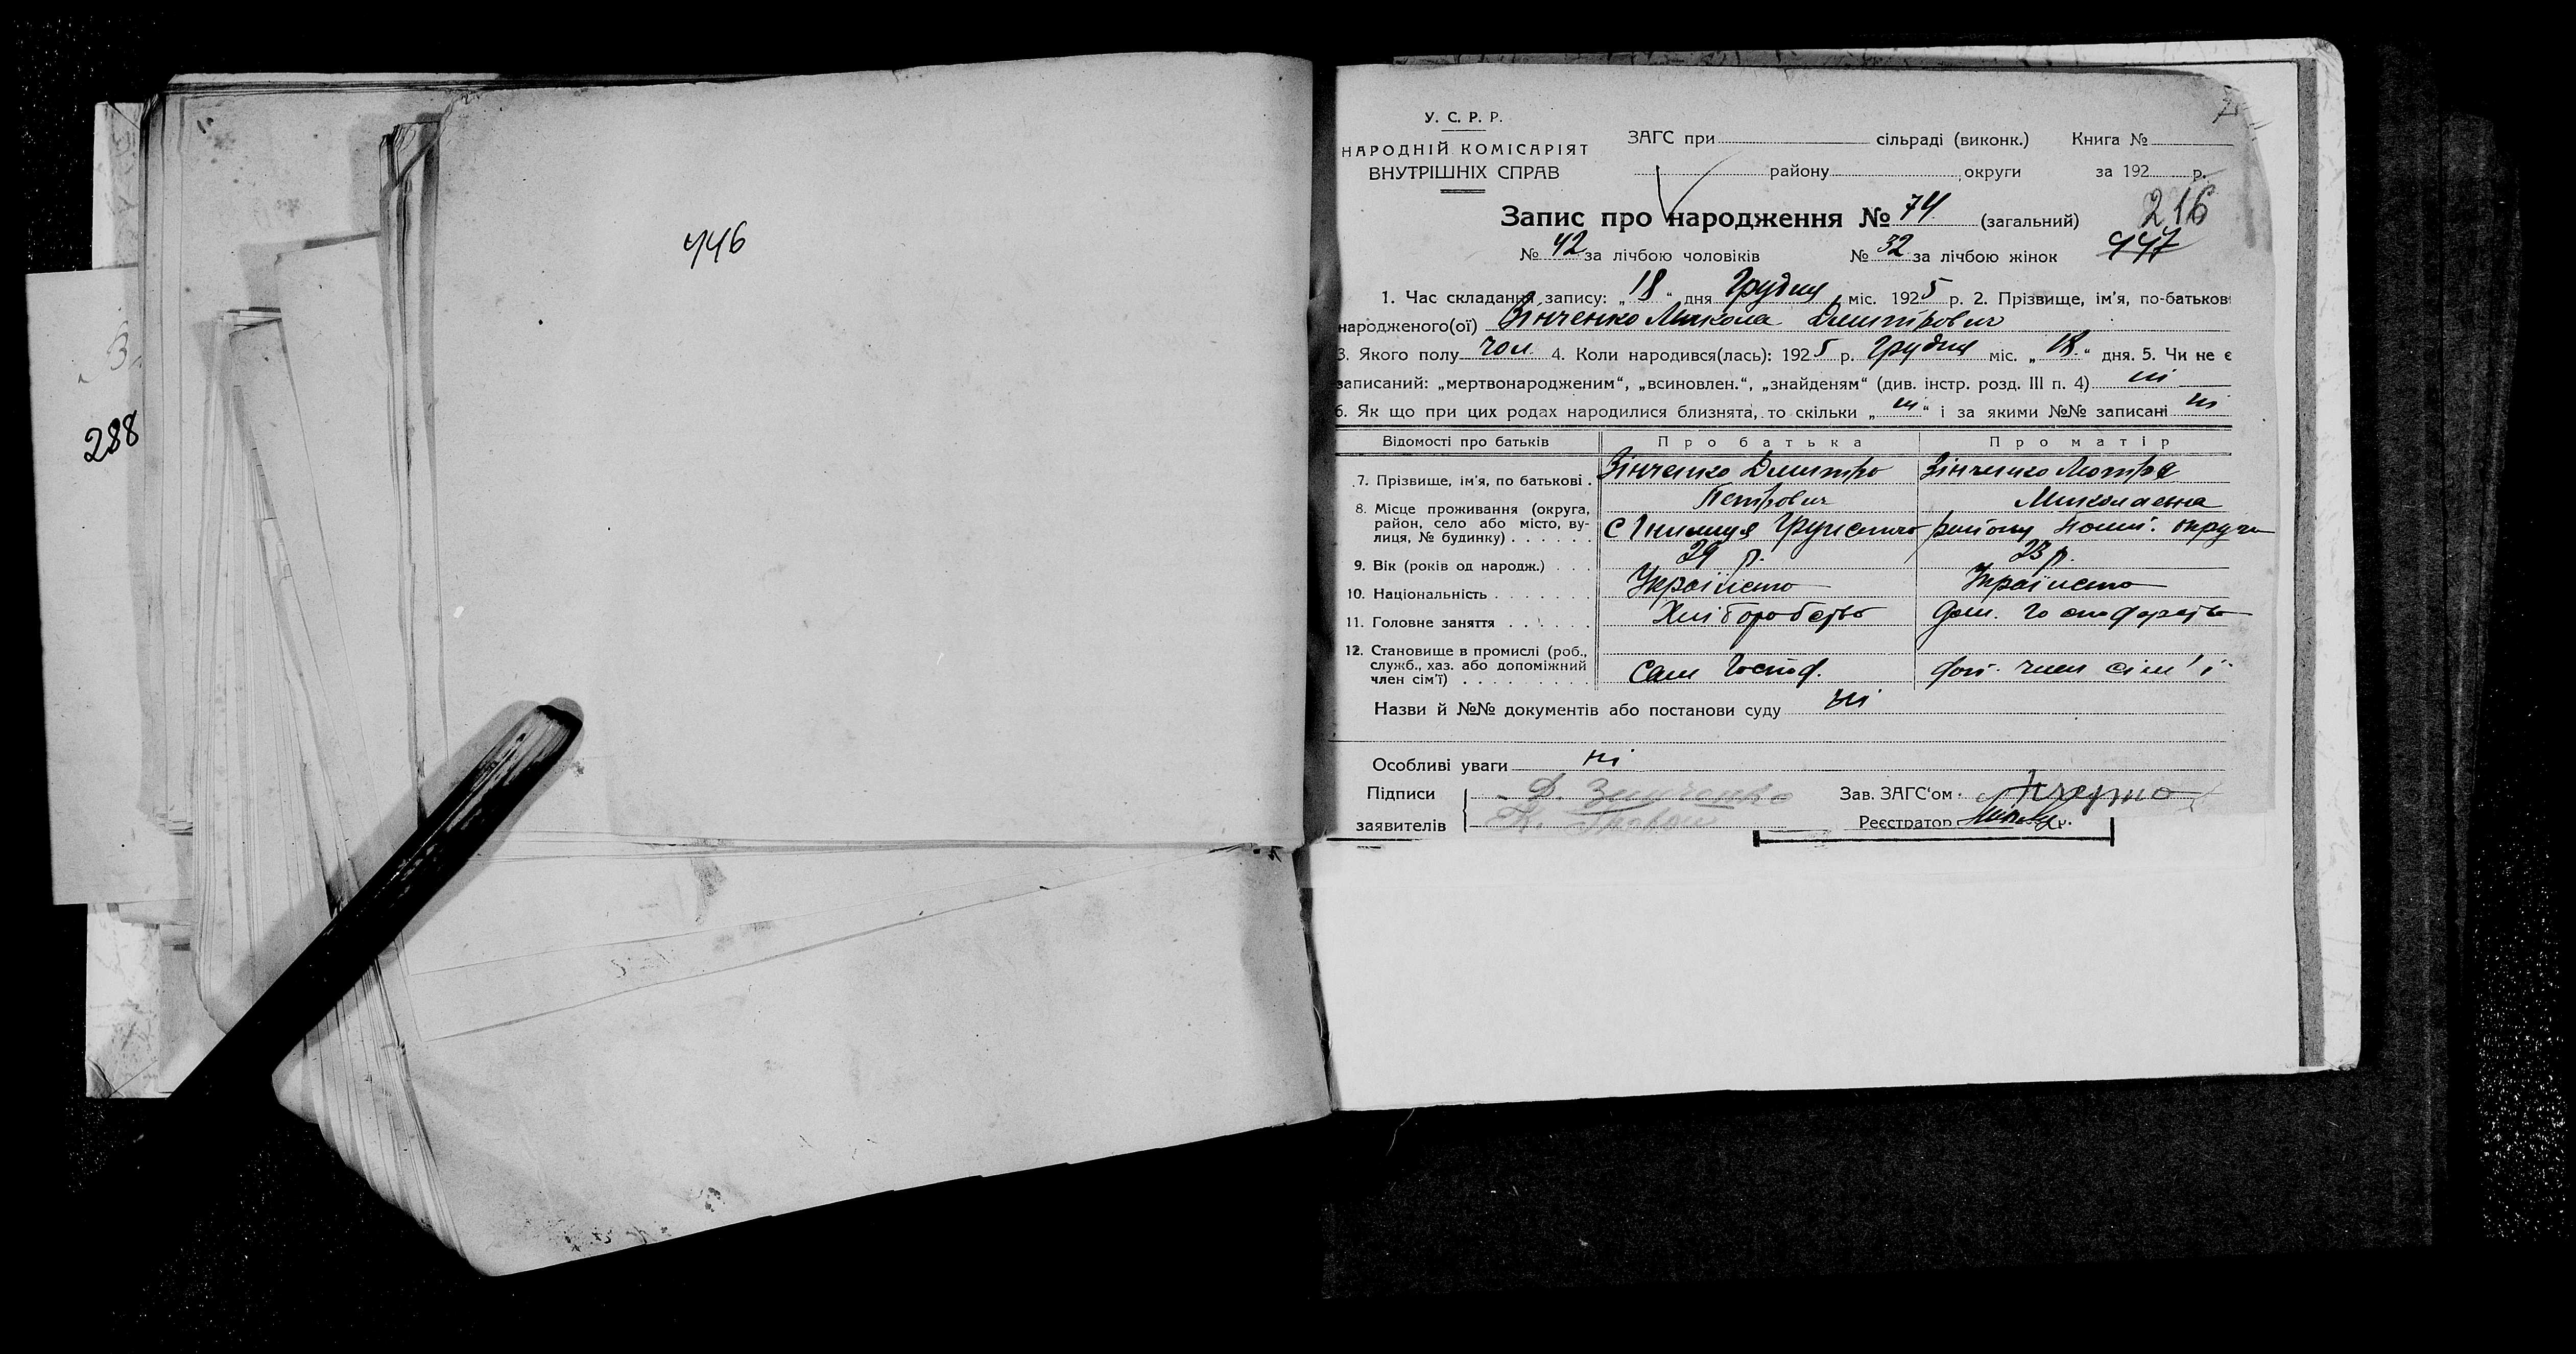 446
288
У. С. Р. Р.
НАРОДНІЙ КОМІСАРІЯТ
ВНУТРІШНІХ СПРАВ
ЗАГС при сільраді (виконк.) Книга №
району округи за 192 р.
216
Запис про народження № 74 (загальний)
№ 42 за лічбою чоловіків № 32 за лічбою жінок 447
1. Час складання запису: „18“ дня Грудня міс. 1925 р. 2. Прізвище, ім'я, по-батькові
народженого(ої) Зінченко Микола Дмитрович
3. Якого полу чол. 4. Коли народився(лась): 1925 р. Грудня міс. „18“ дня. 5. Чи не є
записаний: „мертвонародженим“, „всиновлен.“, „знайденям“ (див. інстр. розд. III п. 4) ні
6. Як що при цих родах народилися близнята, то скільки „ні“ і за якими №№ записані ні
Відомості про батьків Про батька Про матір
7. Прізвище, ім'я, по батькові . Зінченко Дмитро Петрович Зінченко Мотря Миколаевна
8. Місце проживання (округа, район, село або місто, вулиця, № будинку) . . . . . . с району округи
9. Вік (років од народж.) . . . 29 р. 23 р.
10. Національність . . . . . . . Українець Українець
11. Головне заняття . . . . . . Хліборобство дом. господарство
12. Становище в промислі (роб., служб., хаз. або допоміжний член сім'ї) . . . . . . . . . Сам Господ. доп. член сім'ї
Назви й №№ документів або постанови суду ні
Особливі уваги ні
Підписи Д. Зинченко Зав. ЗАГС'ом
заявителів Реєстратор